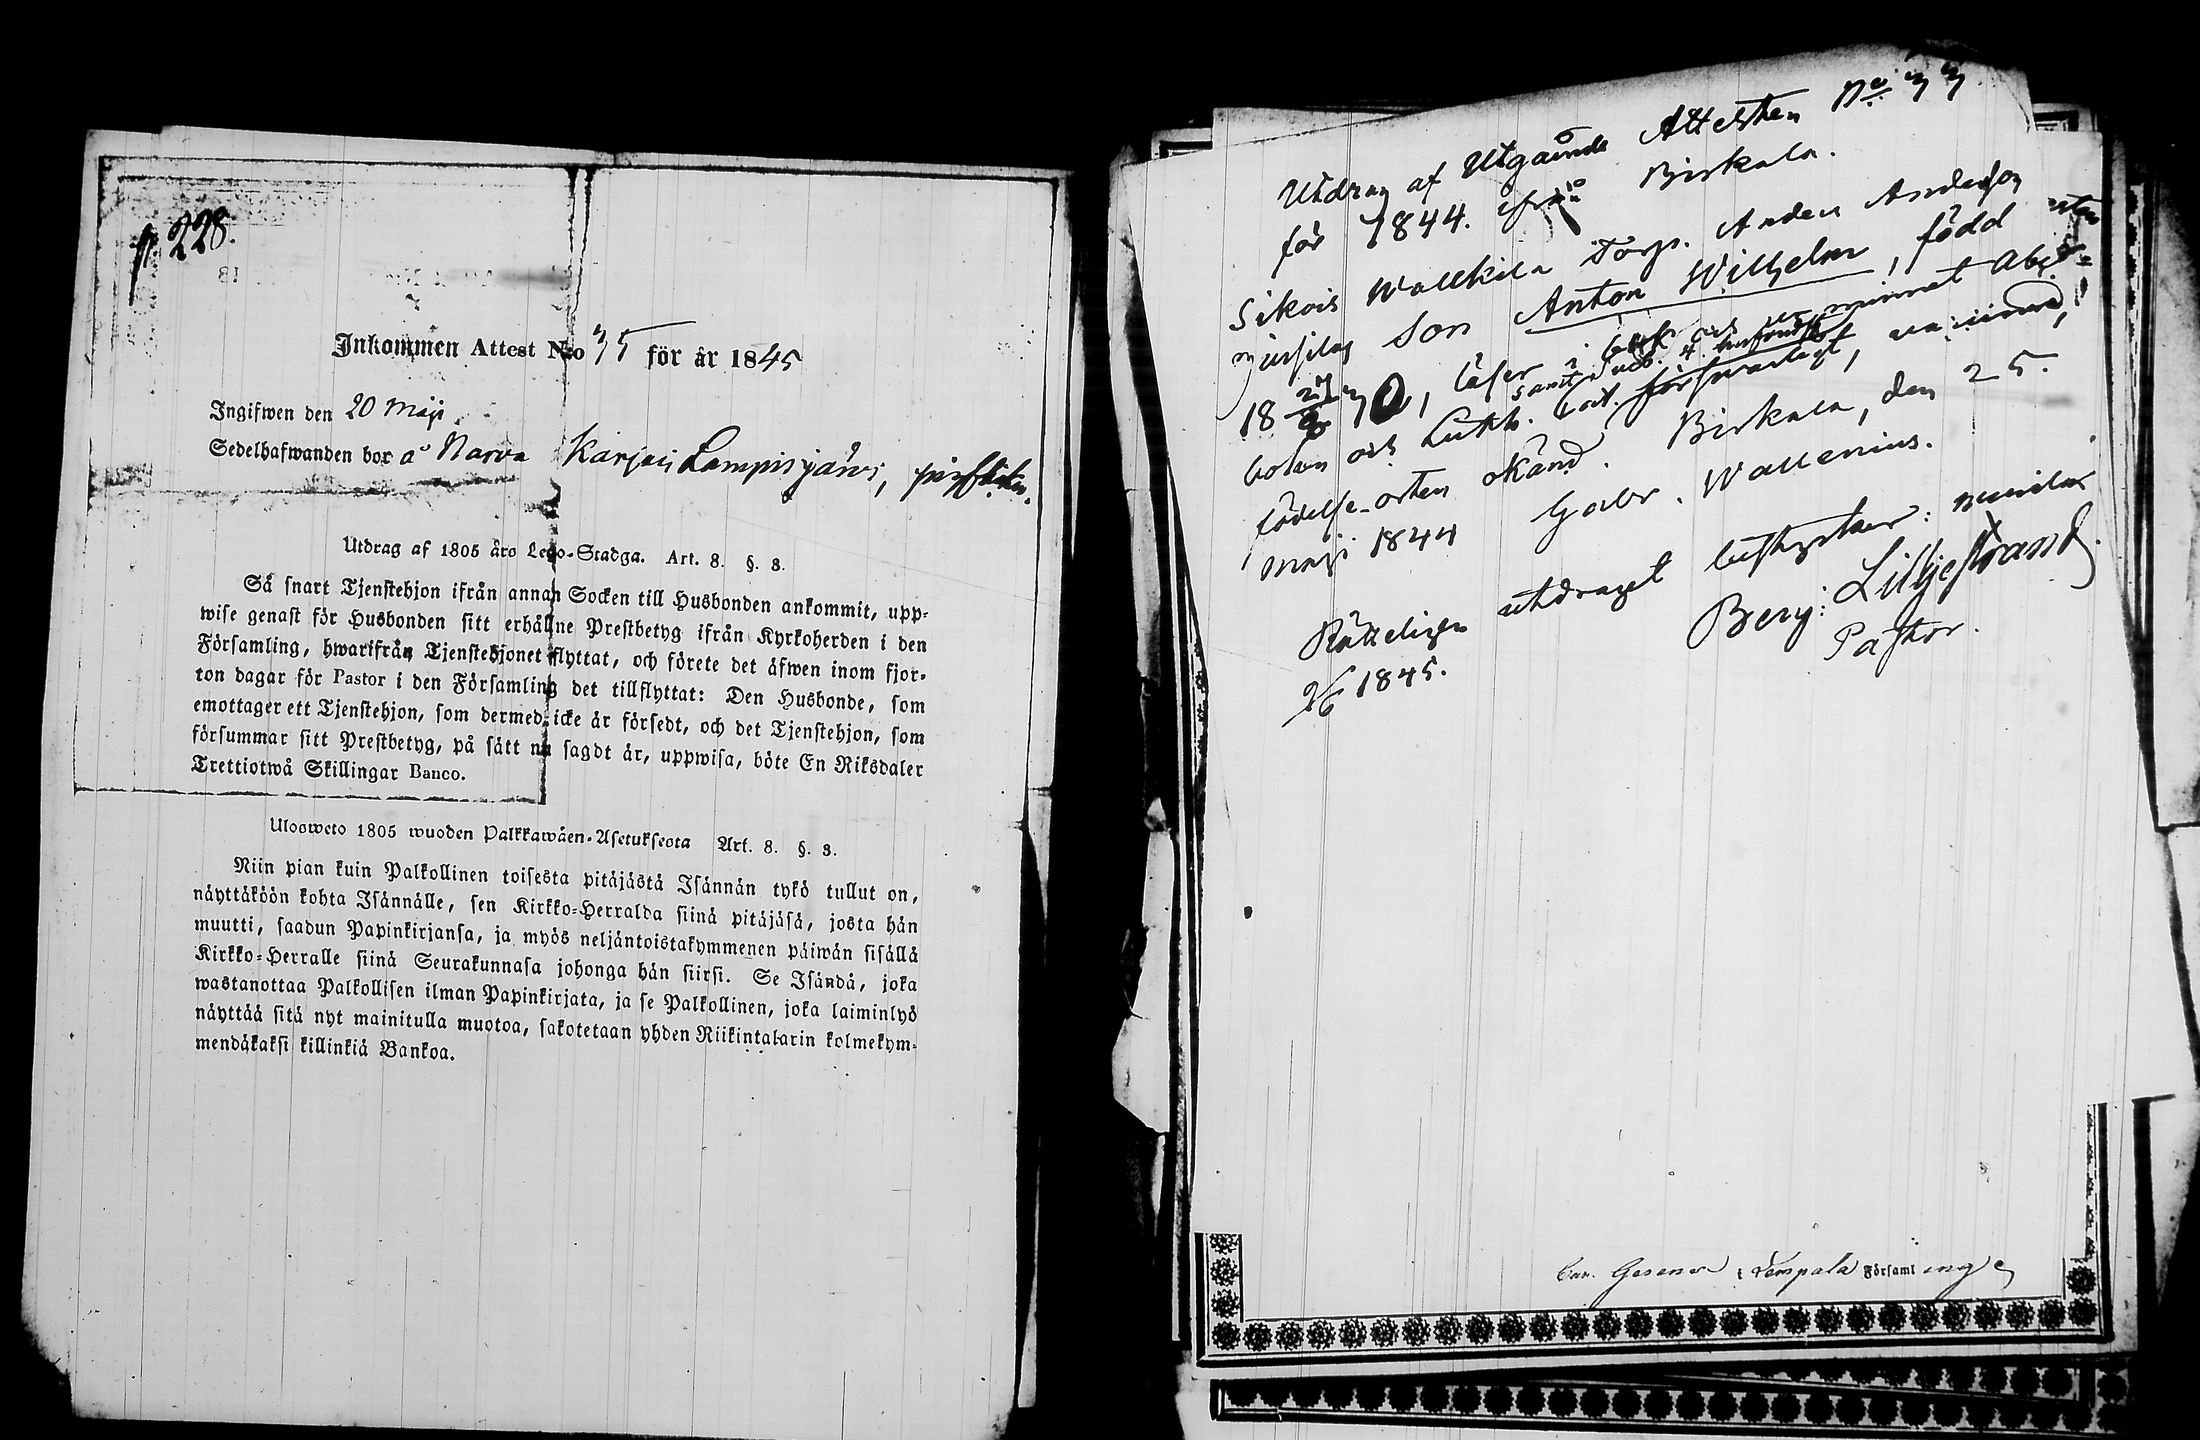 N. 228.
Inkommen Attest N:o 35 för år 1845
Ingifwen den 20 Maji
Sedelhafwanden bor å Narva Karjais Lampisjärvi,
Utdrag af 1805 års Lego-Stadga. Art. 8. §. 8.
Så snart Tjenstehjon ifrån annan Socken till Husbonden ankommit, upp-
wise genast för Husbonden sitt erhållne Prestbetyg ifrån Kyrkoherden i den
Församling, hwarifrån Tjenstehjonet flyttat, och förete det äfwen inom fjor-
ton dagar för Pastor i den Församling det tillflyttat: Den Husbonde, som
emottager ett Tjenstehjon, som dermed icke är försedt, och det Tjenstehjon, som
försummar sitt Prestbetyg, på sätt nu sagdt är, uppwisa, böte En Riksdaler
Trettiotwå Skillingar Banco.
Ulosweto 1805 wuoden Palkkawäen-Asetuksesta Art. 8. §. 8.
Niin pian kuin Palkollinen toisesta pitäjästä Isännän tykö tullut on,
näyttäköön kohta Isännälle, sen Kirkko-Herralda siinä pitäjäsä, josta hän
muutti, saadun Papinkirjansa, ja myös neljäntoistakymmenen päiwän sisällä
Kirkko-Herralle siinä Seurakunnasa johonga hän siirsi. Se Isändä, joka
wastanottaa Palkollisen ilman Papinkirjata, ja se Palkollinen, joka laiminlyö
näyttää sitä nyt mainitulla muotoa, sakotetaan yhden Riikintalarin kolmekym-
mendäkaksi killinkiä Bankoa.
Utdrag af Utgående Attesten No 33
för 1844. ifrån Birkala.
Sikois Wallkila Torp. Anders Andersson
son Anton Wilhelm, född
18 27 30, läser i och minnet Abc-
boken och Luth. Cat. försvarligt,
samt
födelse-orten okänd. Birkala, den 25.
Maji 1844 Gabr. Wallenius.
Rätteligen utdraget
Benj: Liljestrand.
1845. Pastor.
Lempala Församlinge